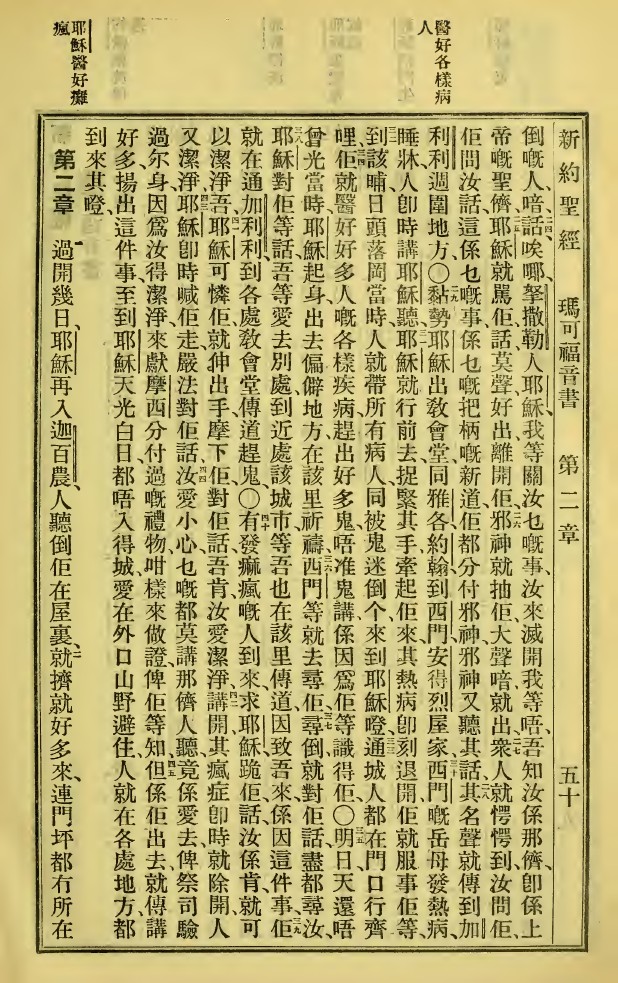 新約聖經　瑪可福音書　第二章　五十
醫好各樣病
人
耶穌醫好癱
瘋
倒嘅人喑話唉㖿拏撒勒人耶穌我等關汝乜嘅事汝來滅開我等唔吾知汝係那儕卽係上
帝嘅聖儕耶穌就罵佢話莫聲好出離開佢邪神就抽佢大聲喑就出衆人就愕愕到汝問佢
佢問汝話這係乜嘅事係乜嘅把柄嘅新道佢都分付邪神邪神又聽其話其名聲就傳到加
利利週圍地方〇黏勢耶穌出敎會堂同雅各約翰到西門安得烈屋家西門嘅岳母發熱病
睡牀人卽時講耶穌聽耶穌就行前去捉緊其手牽起佢來其熱病卽刻退開佢就服事佢等
到該晡日頭落岡當時人就帶所有病人同被鬼迷倒个來到耶穌嶝通城人都在門口行齊
哩佢就醫好好多人嘅各樣疾病趕出好多鬼唔准鬼講係因爲佢等識得佢〇明日天還唔
曾光當時耶穌起身出去偏僻地方在該里祈禱西門等就去尋佢尋倒就對佢話盡都尋汝
耶穌對佢等話吾等愛去別處到近處該城市等吾也在該里傳道因致吾來係因這件事佢
就在通加利利到各處敎會堂傳道趕鬼〇有發癩瘋嘅人到來求耶穌跪佢話汝係肯就可
以潔淨吾耶穌可憐佢就伸出手摩下佢對佢話吾肯汝愛潔淨講開其瘋症卽時就除開人
又潔淨耶穌卽時喊佢走嚴法對佢話汝愛小心乜嘅都莫講那儕人聽竟係愛去俾祭司驗
過尔身因爲汝得潔淨來獻摩西分付過嘅禮物咁樣來做證俾佢等知但係佢出去就傳講
好多揚出這件事至到耶穌天光白日都唔入得城愛在外口山野避住人就在各處地方都
到來其嶝
第二章　過開幾日耶穌再入迦百農人聽倒佢在屋裏就擠就好多來連門坪都冇所在